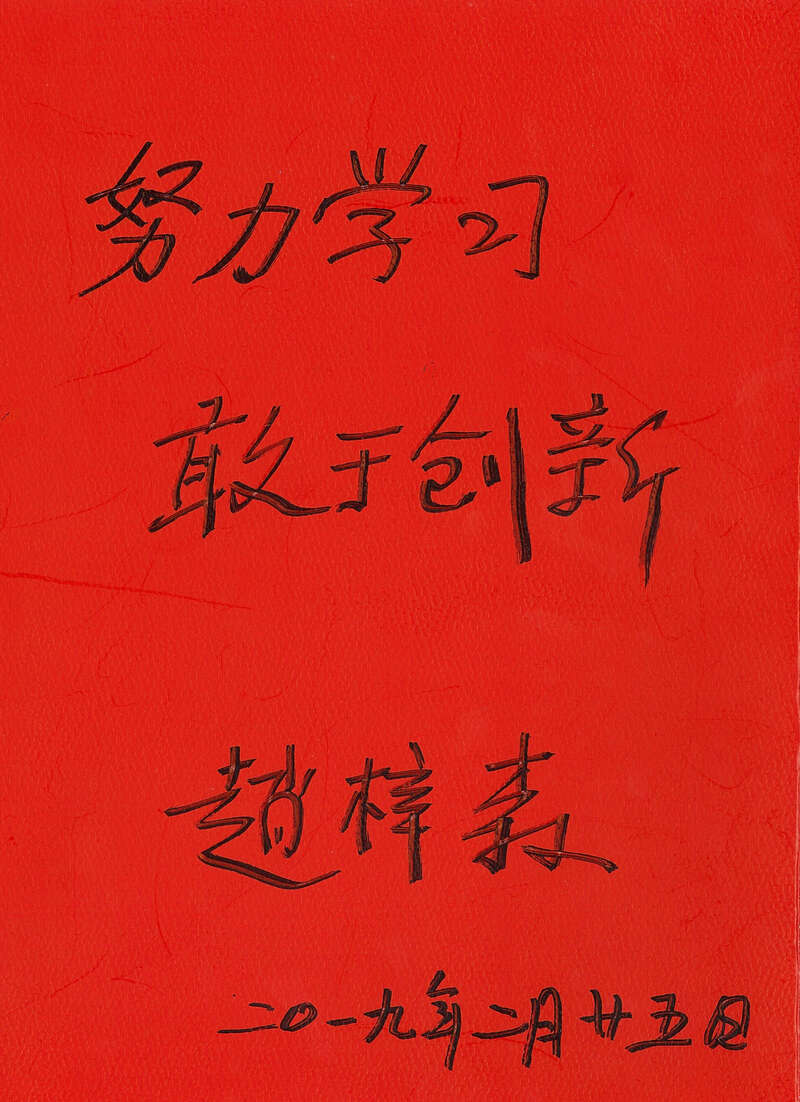 努力学习
敢于创新
趙梓森
二〇一九年二月廿五日